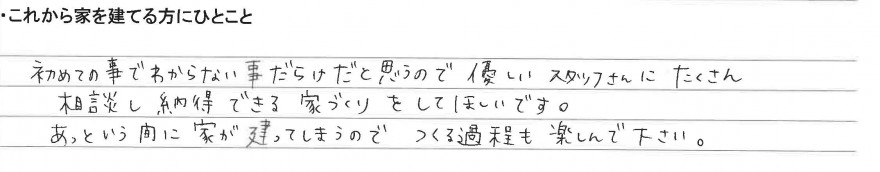 ・これから家を建てる方にひとこと
初めての事でわからない事だらけだと思うので 優しい スタッフさんに たくさん
相談し 納得 できる 家づくり を してほしいです。
あっという間に 家が 建ってしまうので つくる過程も 楽しんで下さい。